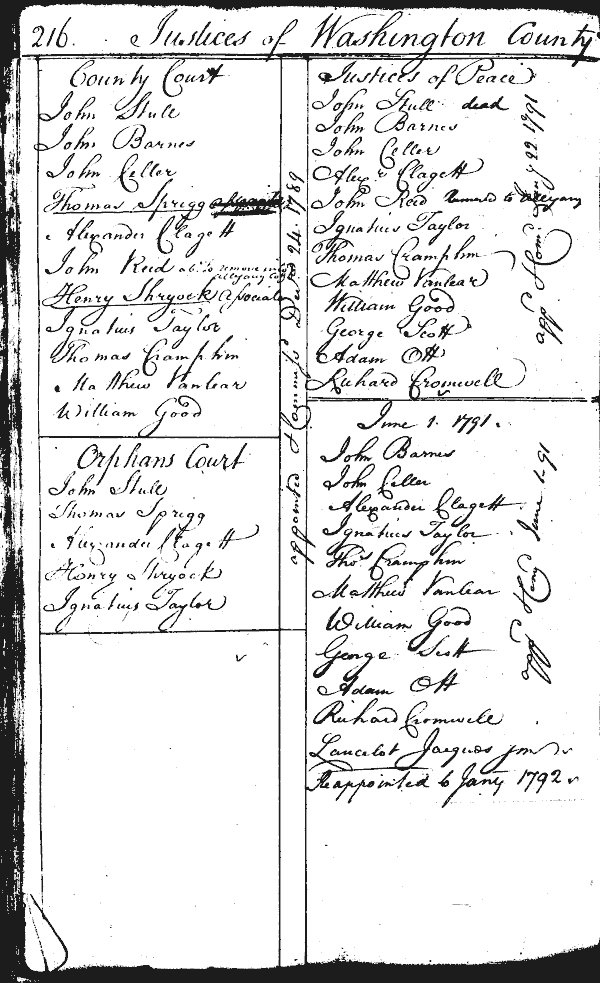 216. Justices of Washington County
County Court
John Stull
John Barnes
John Celler
Thomas Sprigg
Alexander Clagett
John Reid
Henry Shryock Associate
Ignatius Taylor
Thomas Cramphin
Matthew Vanlear
William Good
appointed & Commissd Decr 24. 1789
Orphans Court
John Stull
Thomas Sprigg
Alexander Clagett
Henry Shryock
Ignatius Taylor
Justices of Peace
John Stull dead
John Barnes
John Celler
Alexr Clagett
John Reid removed to Allegany
Ignatius Taylor
Thomas Cramphin
Matthew Vanlear
William Good
George Scott
Adam Ott
Richard Cromwell
22 1791
June 1. 1791.
John Barnes
John Celler
Alexander Clagett
Ignatius Taylor
Thos Cramphin
Matthew Vanlear
William Good
George Scott
Adam Ott
Richard Cromwell
Lancelot Jacques junr
Reappointed 6 Jany 1792
June 1-91